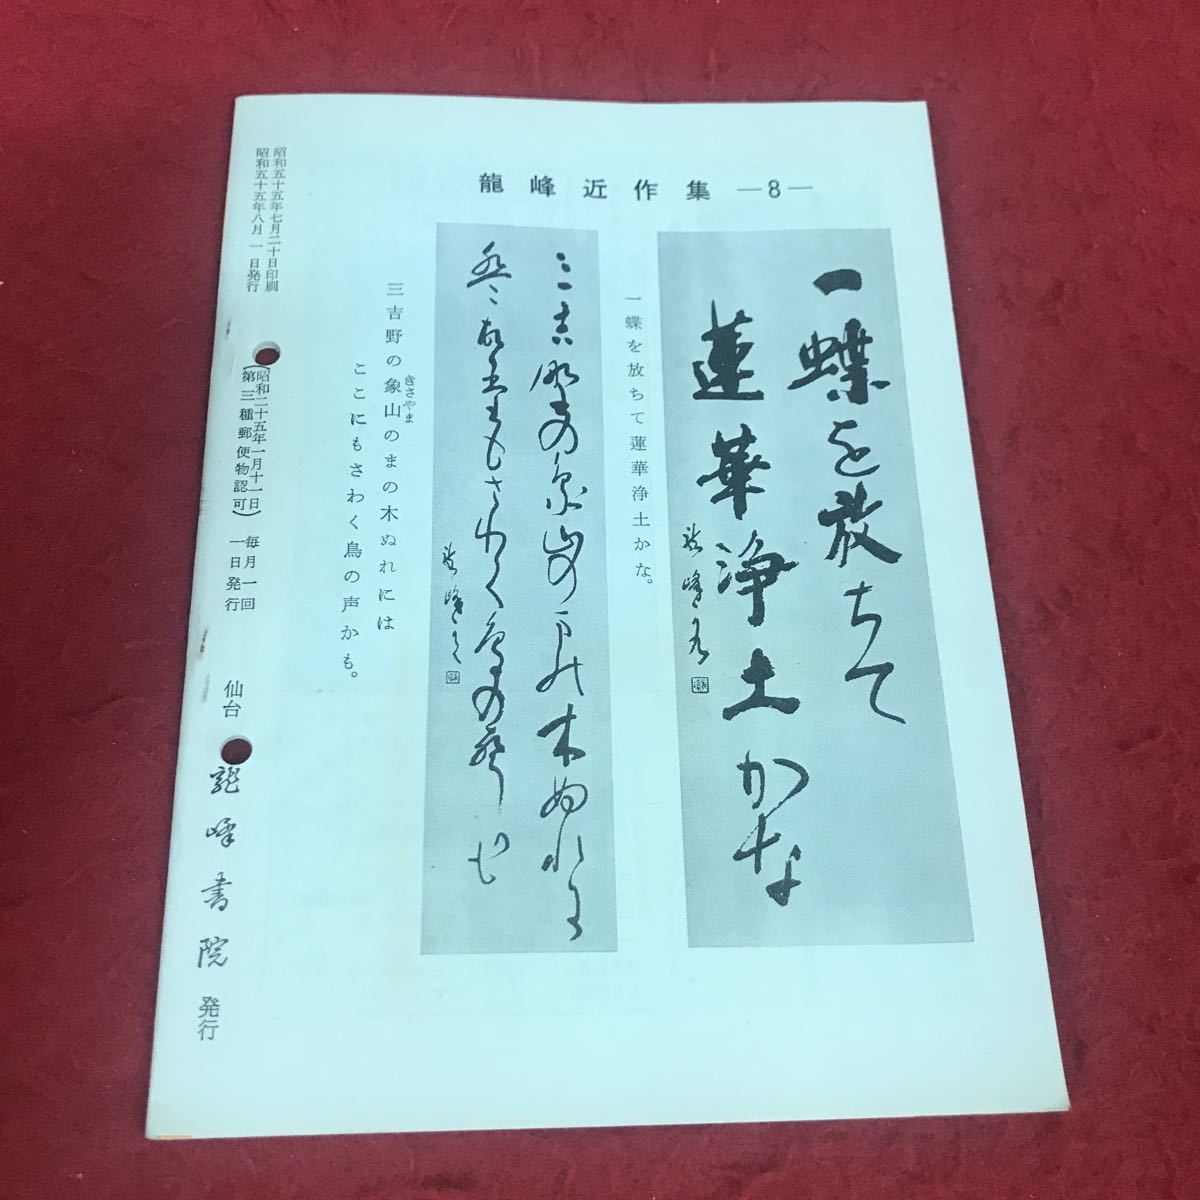 龍峰近作集 ―8―
一蝶を放ちて
蓮華浄土かな
一蝶を放ちて蓮華浄土かな。
三吉野の象山のま乃木ぬれに
龍峰
三吉野の象山のまの木ぬれには
きさやま
ここにもさわく鳥の声かも。
昭和五十五年七月二十日印刷
昭和五十五年八月一日発行
(昭和二十五年一月十一日
第三種郵便物認可)
毎月一回
一日発行
仙台
龍峰書院
発行